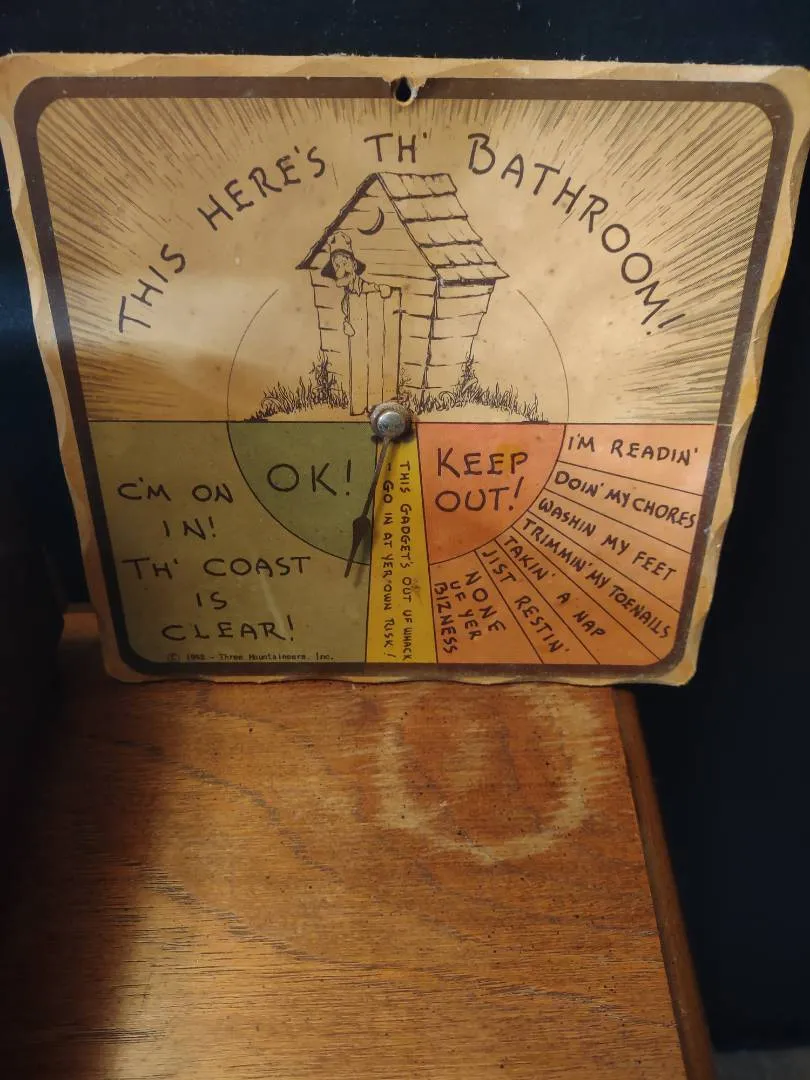 THIS HERE'S TH' BATHROOM!
OK!
C'M ON
IN!
TH' COAST
IS
CLEAR!
THIS GADGET'S OUT UF WHACK
- GO IN AT YER OWN RISK!
KEEP
OUT!
I'M READIN'
DOIN' MY CHORES
WASHIN MY FEET
TRIMMIN' MY TOENAILS
TAKIN' A NAP
JIST RESTIN'
NONE
UF YER
BIZNESS
Three Mountaineers, Inc.